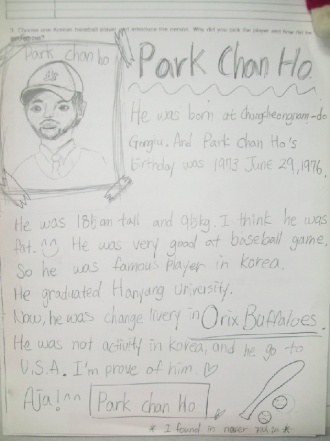 3. Choose one Korean baseball player and introduce the person. Why did you pick the player and how did he get famous?
Park chan ho
Park Chan Ho.
He was born at chungcheongnam-do
Gongju. And Park Chan Ho's
birthday was 1973 June 29, 1976.
He was 185cm tall and 95kg. I think he was
fat. He was very good at baseball game.
So he was famous player in korea.
He graduated Hanyang University.
Now, he was change livery in Orix Buffaloes.
He was not activity in korea, and he go to
U.S.A. I'm prove of him. ♡
Aja! ^^ Park chan Ho
* I found in naver